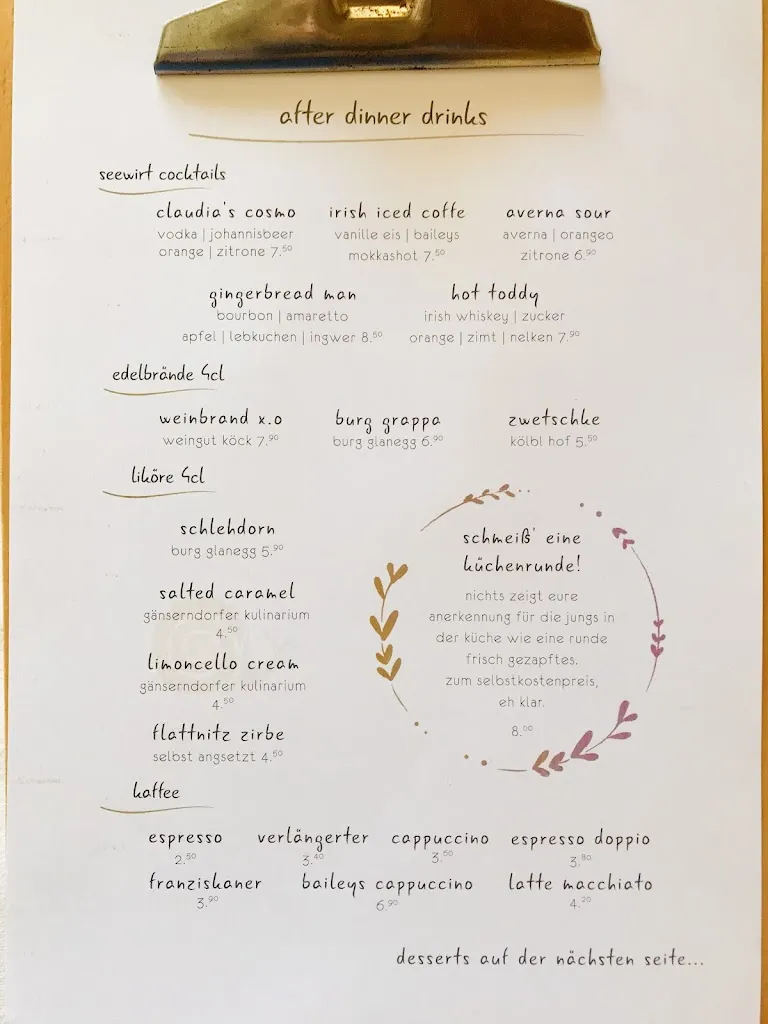 after dinner drinks
seewirt cocktails
claudia's cosmo irish iced coffe averna sour
vodka | johannisbeer vanille eis | baileys averna | orangeo
orange | zitrone 7.50 mokkashot 7.50 zitrone 6.90
gingerbread man hot toddy
bourbon | amaretto irish whiskey | zucker
apfel | lebkuchen | ingwer 8.50 orange | zimt | nelken 7.90
edelbrände 4cl
weinbrand x.o burg grappa zwetschke
weingut köck 7.90 burg glanegg 6.90 kölbl hof 5.50
liköre 4cl
schlehdorn
burg glanegg 5.90
salted caramel
gänserndorfer kulinarium
4.50
limoncello cream
gänserndorfer kulinarium
4.50
flattnitz zirbe
selbst angsetzt 4.50
schmeiß' eine
küchenrunde!
nichts zeigt eure
anerkennung für die jungs in
der küche wie eine runde
frisch gezapftes.
zum selbstkostenpreis,
eh klar.
8.00
kaffee
espresso verlängerter cappuccino espresso doppio
2.50 3.40 3.60 3.80
franziskaner baileys cappuccino latte macchiato
3.90 6.90 4.20
desserts auf der nächsten seite...